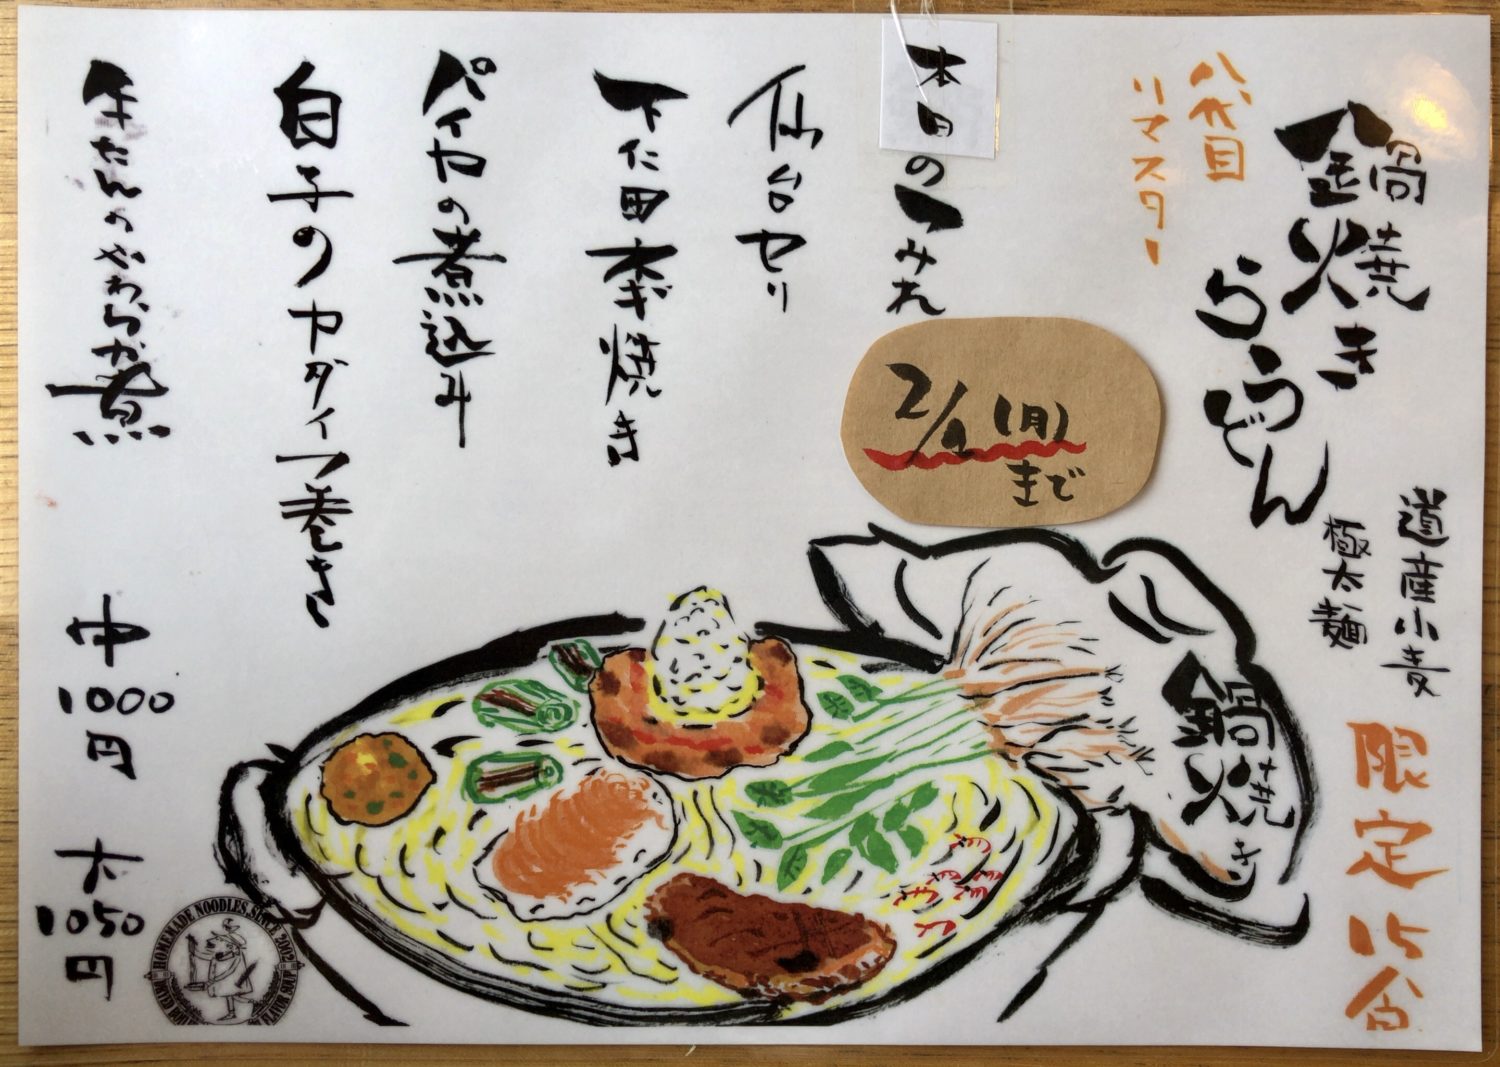 鍋焼き
らうどん
八代目
リマスター
道産小麦
極太麺
限定15食
本日のつみれ
2/1(月)
まで
仙台セリ
下仁田ネギ焼き
パイカの煮込み
白子のカダイフ巻き
牛たんのやわらか煮
中
1000
円
大
1050
円
鍋焼き
HOMEMADE NOODLES, SINCE 2002
FLAVOR SOUP